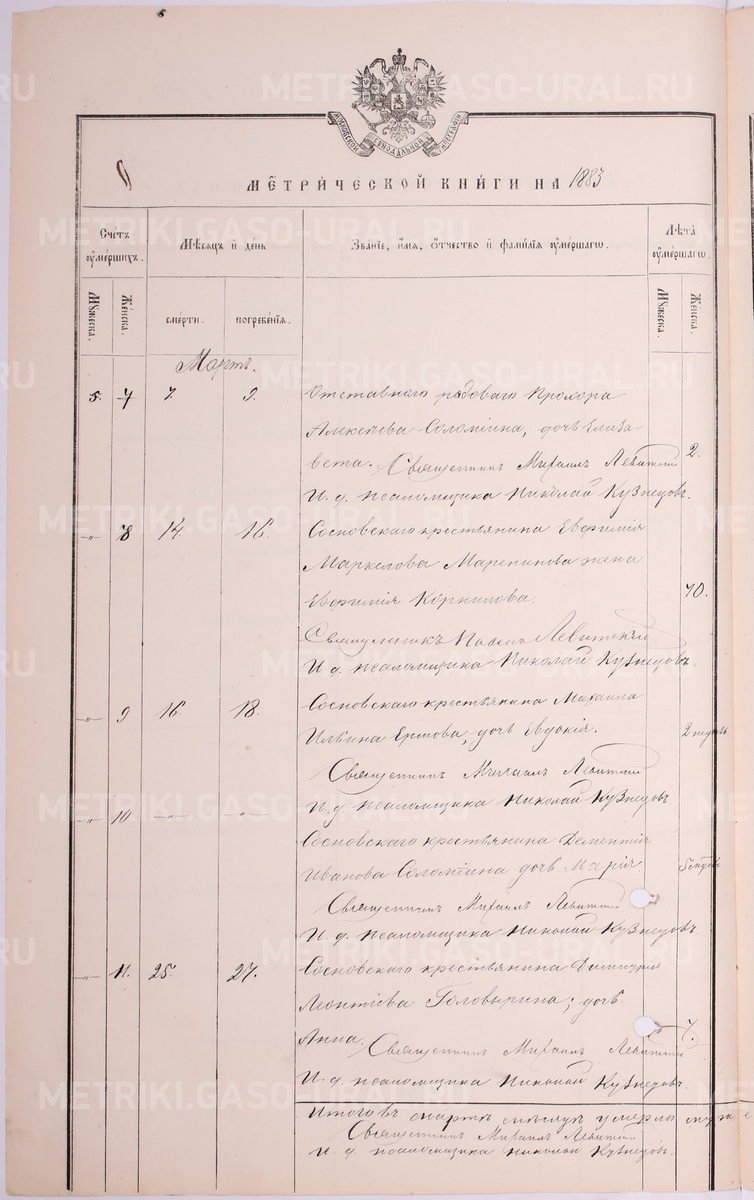 МЕТРИЧЕСКОЙ КНИГИ НА 1883
Счетъ ѹмершихъ.
Мѣсяцъ и день
Званіе, имя, ѿчество и фамиліѧ ѹмершагѡ.
Лѣта ѹмершагѡ.
Мꙋжеска.
Женска.
смерти.
погребеніѧ.
Мꙋжеска.
Женска.
Мартъ.
5. 7 7. 9. Отставнаго рядоваго Прохора
Алексѣева Соломѣина, дочь Елиза-
вета. Священникъ Михаилъ Левитский 2.
И. д. псаломщика Николай Кузнецовъ.
—„— 8 14. 16. Сосновскаго крестьянина Евфимія
Маркелова жена
Евфимія Корнилова. 70.
Священникъ Левитский
И д. псаломщика Николай Кузнецовъ.
—„— 9 16. 18. Сосновскаго крестьянина Михаила
Ильина Ершова, дочь Евдокія. 2 недѣл.
Священникъ Михаилъ Левитский
И. д. псаломщика Николай Кузнецовъ
—„— 10 —„— —„— Сосновскаго крестьянина Дементія
Иванова Соломѣина дочь Марія
Священникъ Михаилъ Левитский
И. д. псаломщика Николай Кузнецовъ.
—„— 11. 25. 27. Сосновскаго крестьянина Димитрія
Леонтіева Головырина; дочь
Анна. Священникъ Михаилъ Левитский 7.
И. д. псаломщика Николай Кузнецовъ.
Итого въ мартѣ мѣсяцѣ умерло муже
Священникъ Михаилъ Левитский
И. д. псаломщика Николай Кузнецовъ.
METRIKI.GASO-URAL.RU